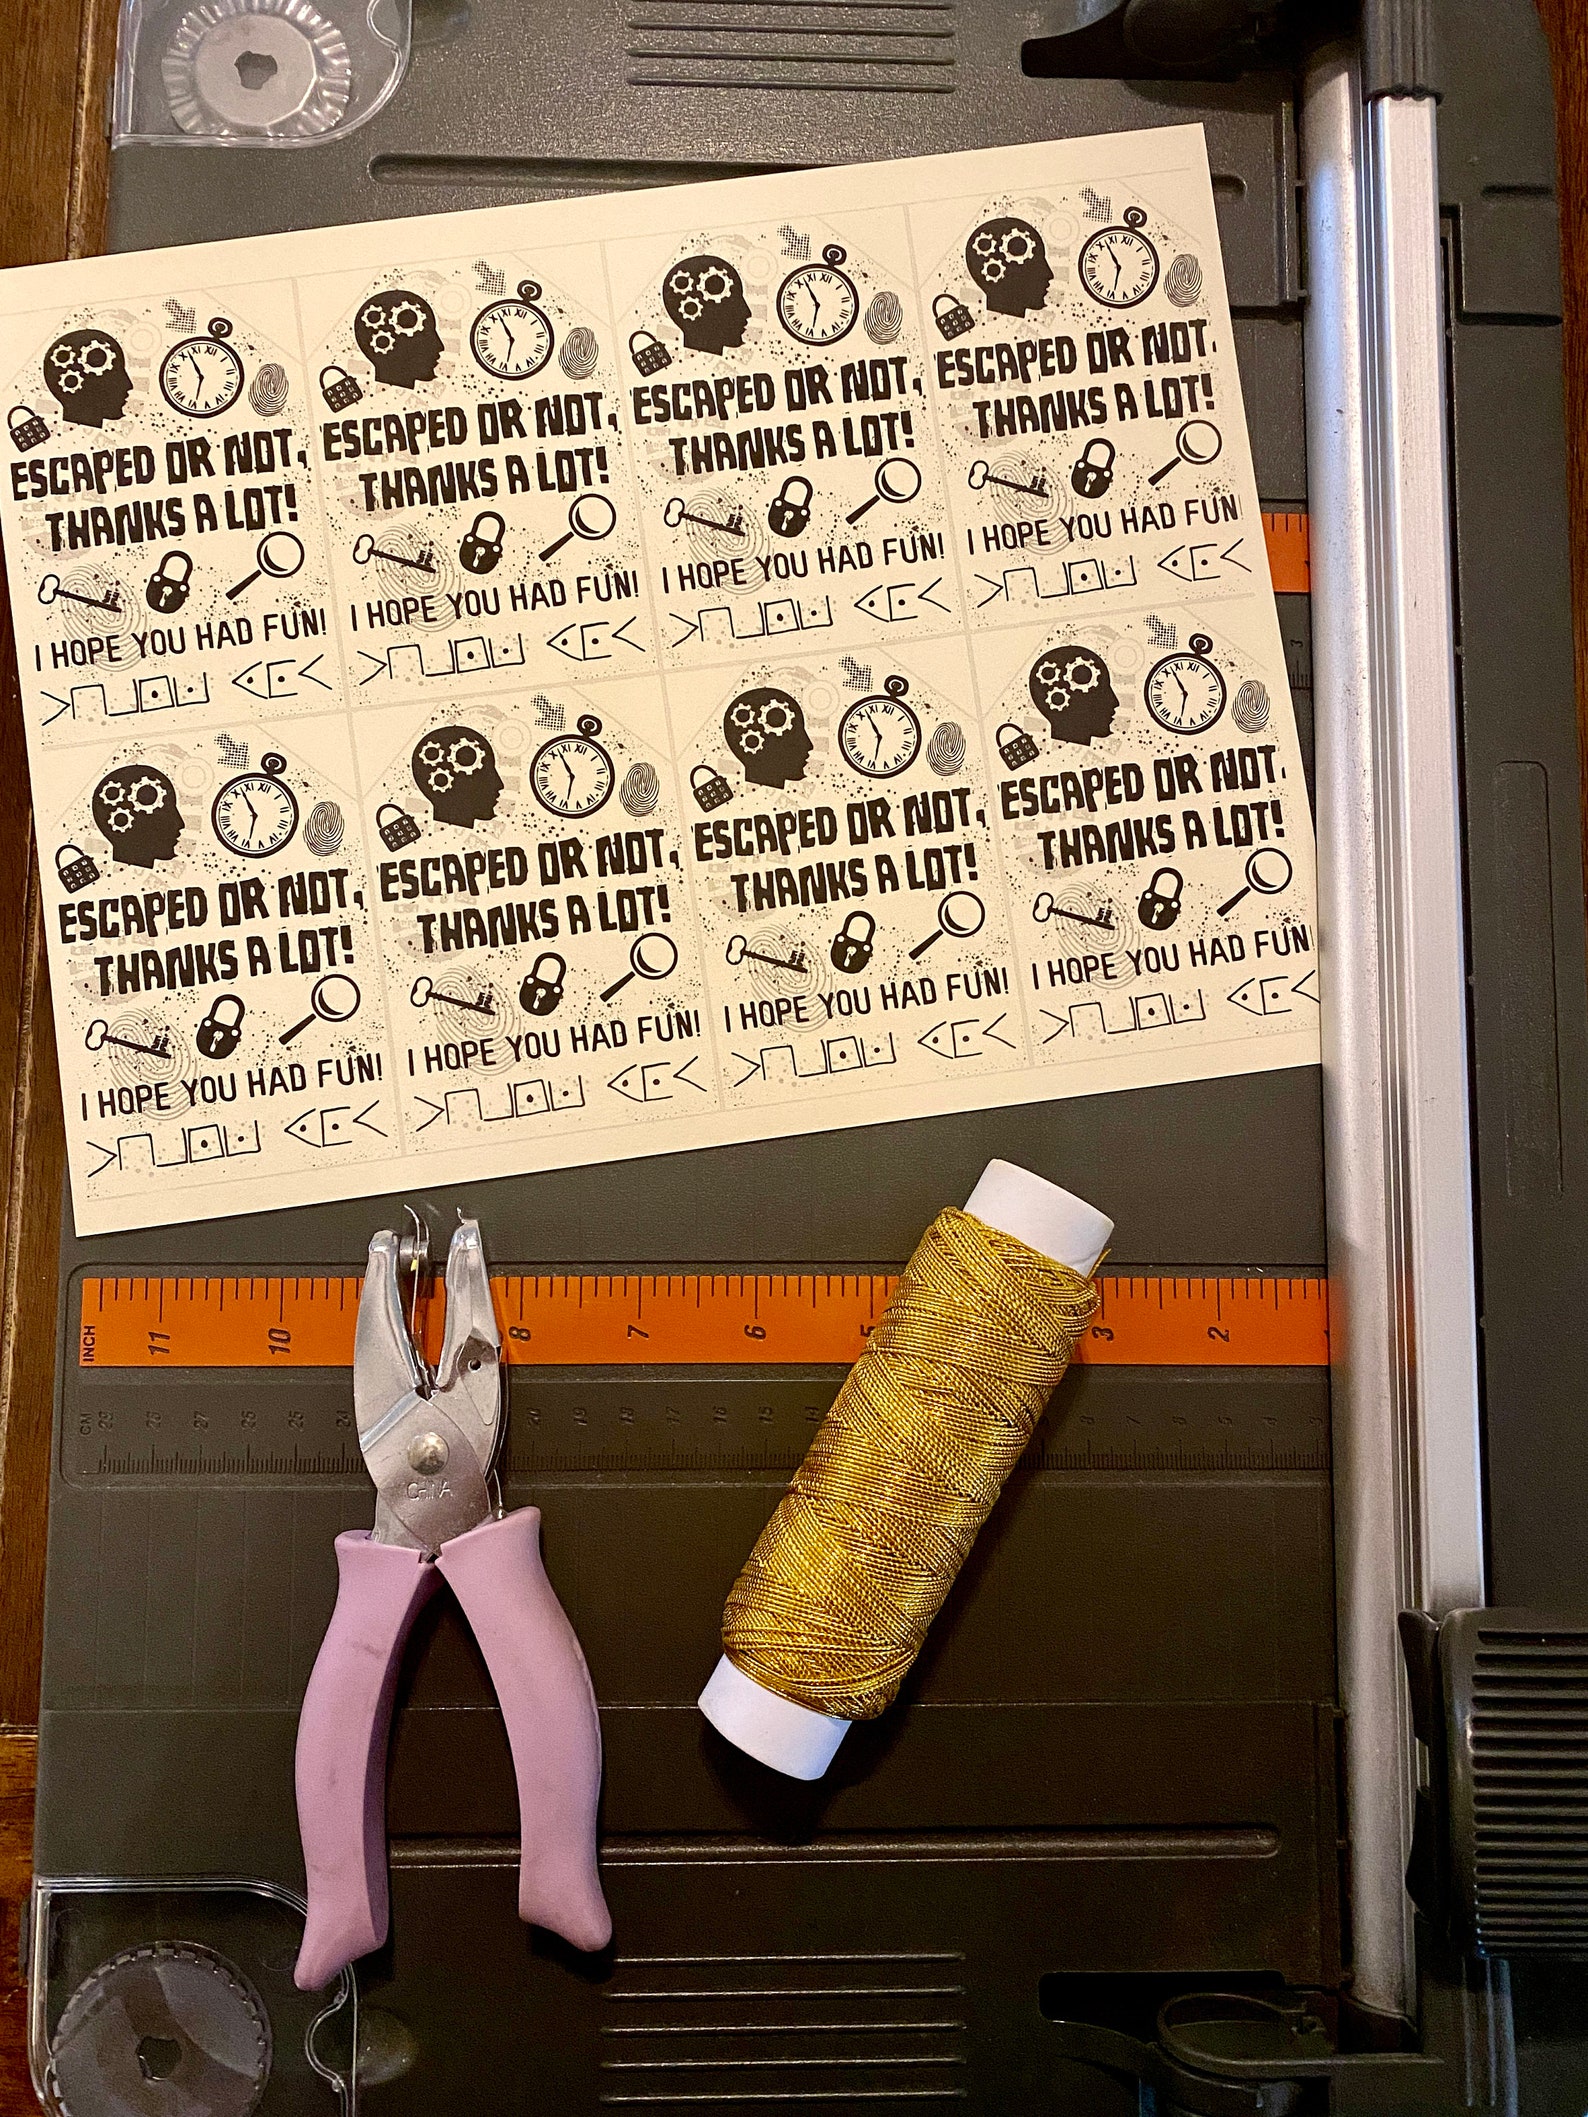 ESCAPED OR NOT,
THANKS A LOT!
I HOPE YOU HAD FUN!
ESCAPED OR NOT,
THANKS A LOT!
I HOPE YOU HAD FUN!
ESCAPED OR NOT,
THANKS A LOT!
I HOPE YOU HAD FUN!
ESCAPED OR NOT,
THANKS A LOT!
I HOPE YOU HAD FUN
ESCAPED OR NOT,
THANKS A LOT!
I HOPE YOU HAD FUN!
ESCAPED OR NOT,
THANKS A LOT!
I HOPE YOU HAD FUN!
ESCAPED OR NOT,
THANKS A LOT!
I HOPE YOU HAD FUN!
ESCAPED OR NOT,
THANKS A LOT!
I HOPE YOU HAD FUN
INCH 11 10 8 7 6 5 3 2
CHINA